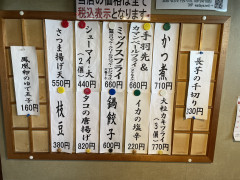 当店の価格は全て
税込表示となります。
長芋の千切り
330円
かつ煮
710円
大粒カキフライ
（3ヶ）
770円
手羽先&
カマンベールフライ
660円
イカの塩辛
220円
ミックスフライ
660円
鍋餃子
600円
シューマイ・大
（2個）
440円
タコの唐揚げ
820円
さつま揚げ天
550円
枝豆
380円
160円